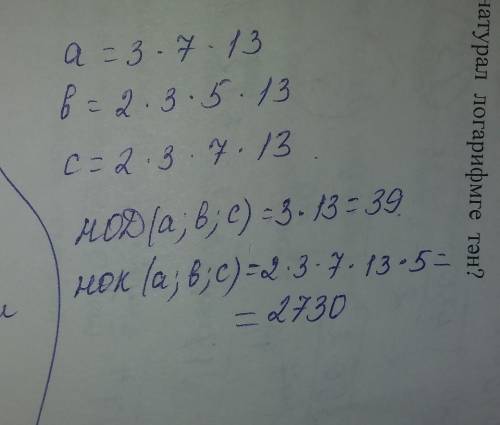 a = 3 · 7 · 13
в = 2 · 3 · 5 · 13
с = 2 · 3 · 7 · 13.
НОД(а; в; с) = 3 · 13 = 39.
НОК(а; в; с) = 2 · 3 · 7 · 13 · 5 =
= 2730
натурал логарифмге тән?